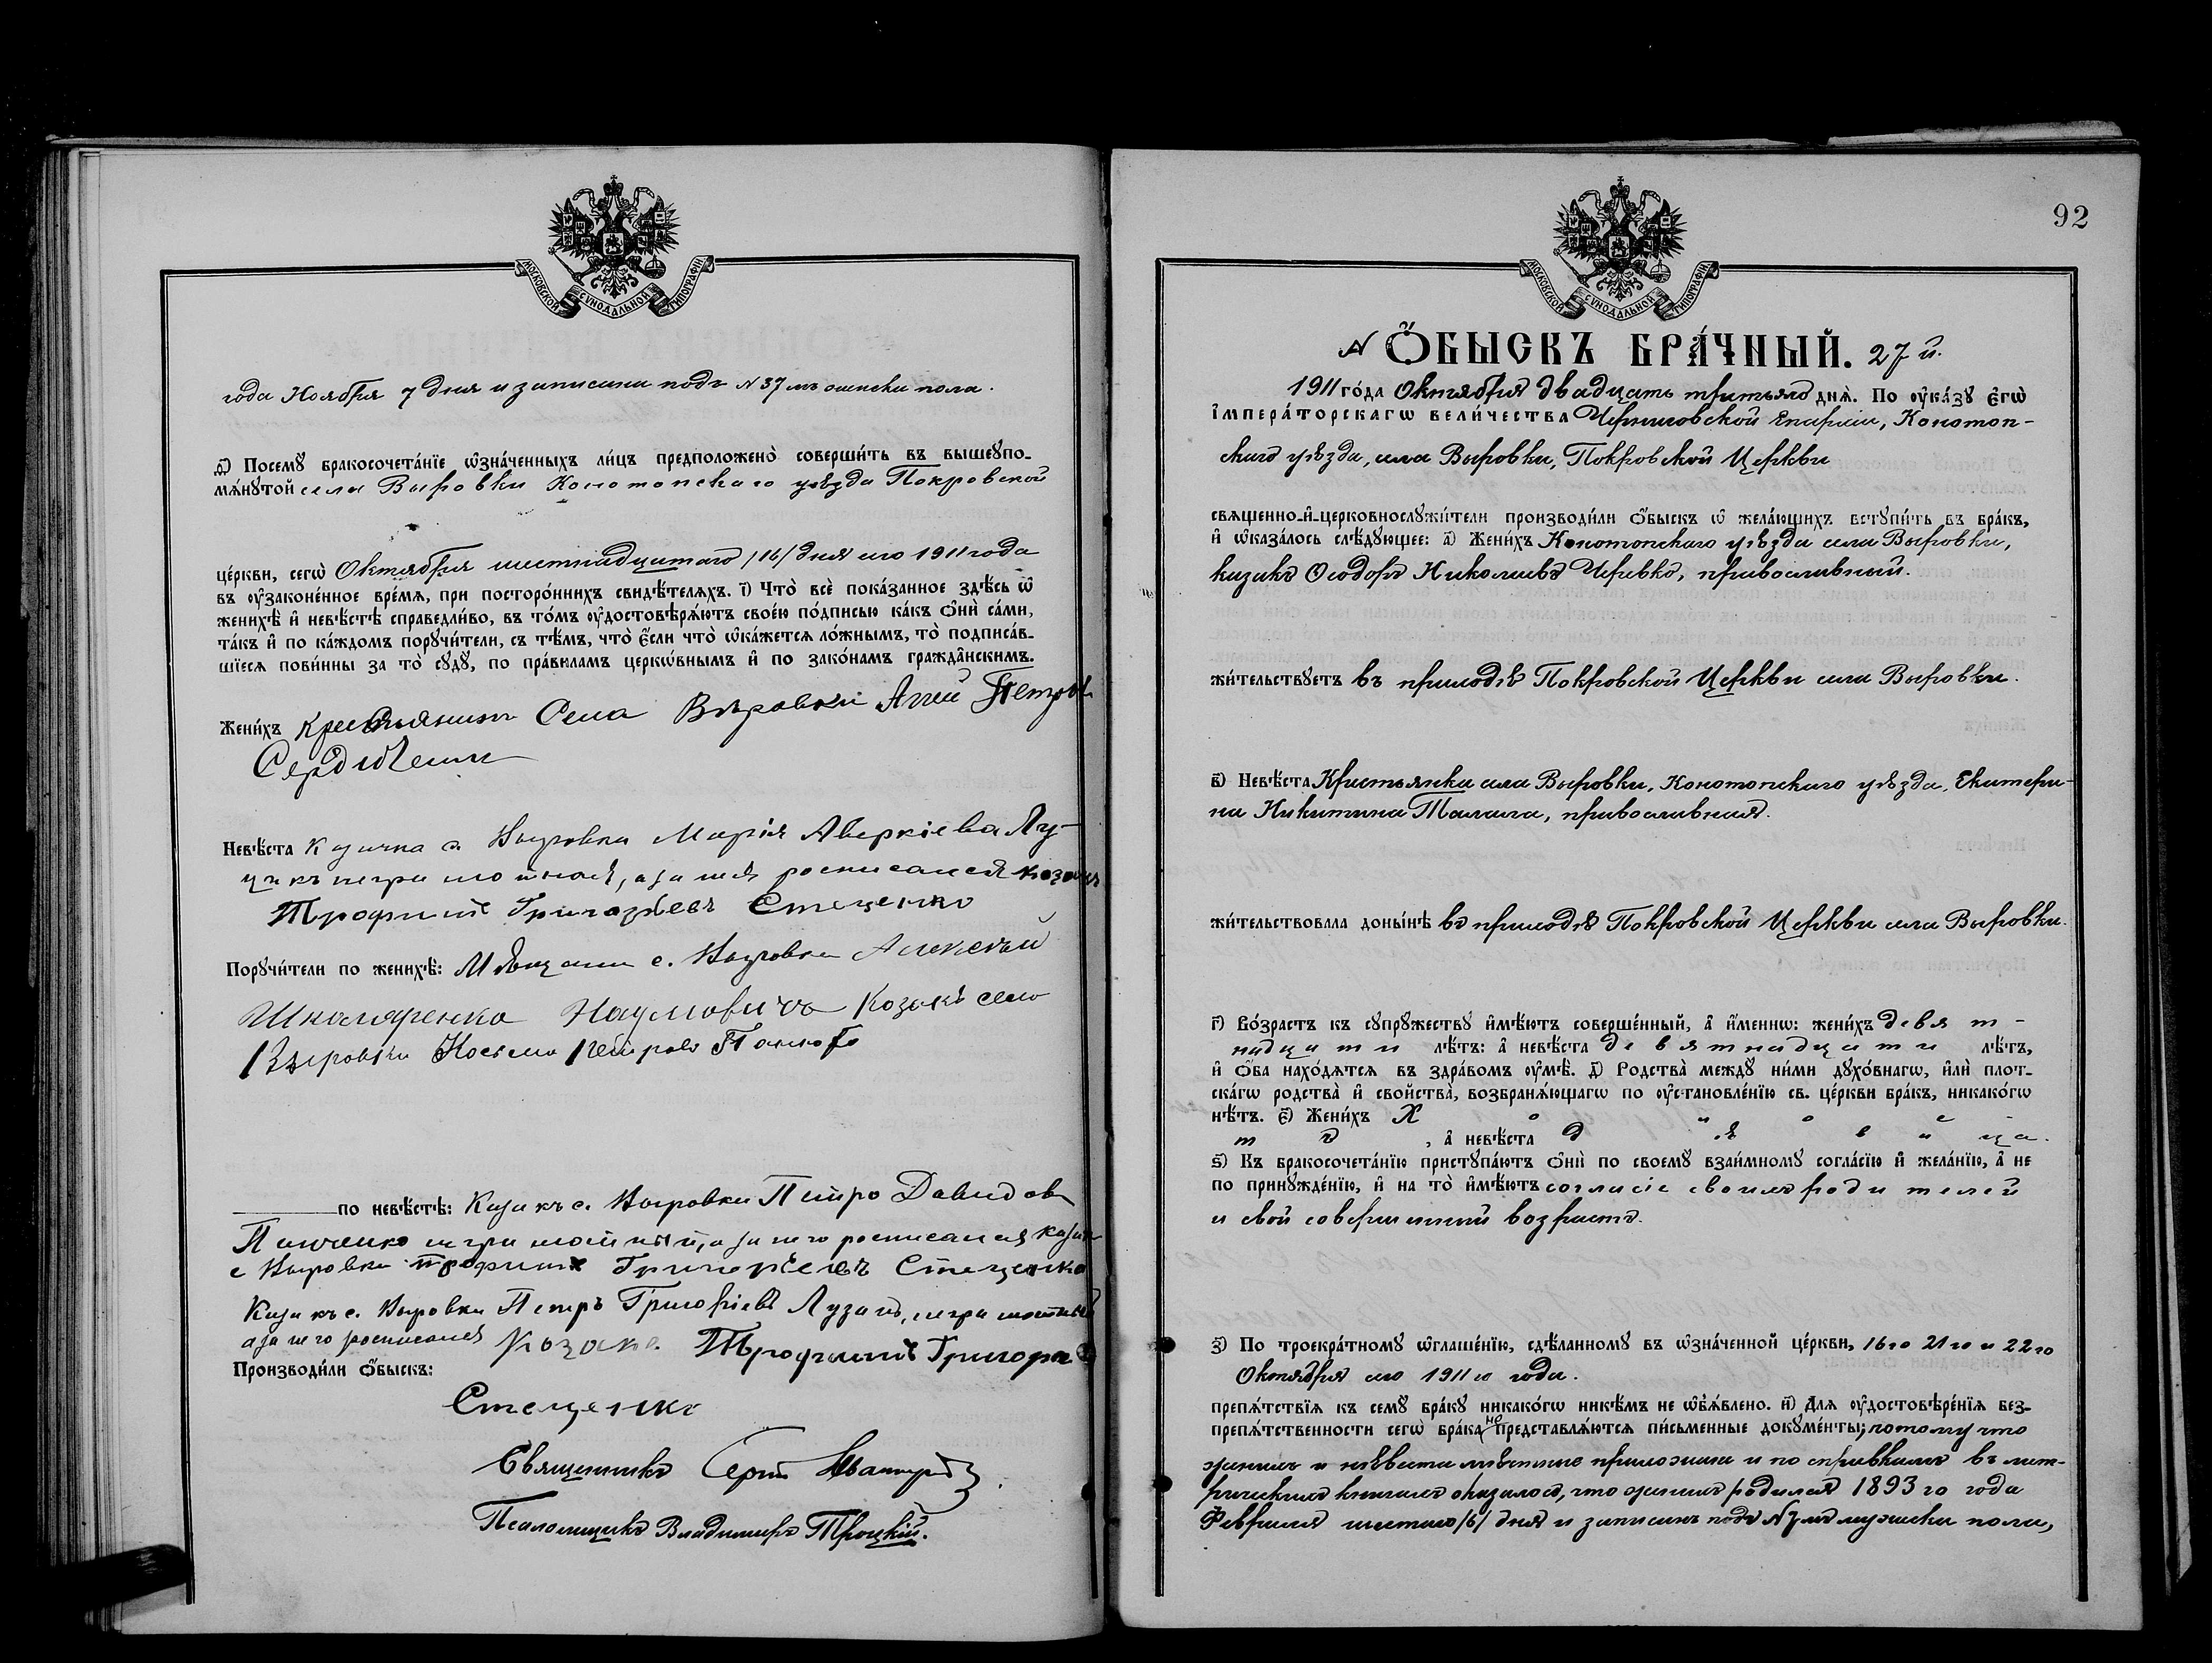 МОСКОВСКОЙ СѴНОДАЛЬНОЙ ТИПОГРАФІИ
года Ноября 7 дня и записана подъ N 37 мъ женска пола.
ѳ҃) Посемꙋ̀ бракосочета́нїе ѡ҆зна́ченныхъ ли́цъ предположено̀ соверши́ть въ вышеꙋпо-
мѧ́нꙋтой села Выровки Конотопскаго уѣзда Покровской
це́ркви, сегѡ̀ Октября шестнадцатаго /16/ дня сего 1911 года
въ ᲂу҆законе́нное вре́мѧ, при посторо́ннихъ свидѣ́телѧхъ. і҃) Что̀ всѐ пока́занное здѣ́сь ѡ҆
женихѣ̀ и҆ невѣ́стѣ справедли́во, въ то́мъ ᲂу҆достовѣрѧ́ютъ свое́ю по́дписью ка́къ ѻ҆нѝ са́ми,
та́къ и҆ по ка́ждомъ порꙋчи́тели, съ тѣ́мъ, что̀ є҆́сли что̀ ѡ҆ка́жетсѧ ло́жнымъ, то̀ подписа́в-
шїесѧ пови́нны за то̀ сꙋдꙋ̀, по пра́виламъ церкѡ́внымъ и҆ по зако́намъ гражда̑нскимъ.
Жени́хъ Крестьянинъ Села Выровки Агей Петровъ
Невѣ́ста Казачка с. Выровки Марія Аверкіева Лу-
цикъ неграмотная, а за нея росписался козакъ
Трофимъ Григорьевъ Стеценко
Порꙋчи́тели по женихѣ̀: Мѣщанин с. Выровки Алексѣй
Шкляренко Наумовичъ Козакъ село
Выровки Косьма Петровъ
по невѣ́стѣ: Казакъ с. Выровки Петро Давидов
Панченко неграмотный, а за него росписался казак
с Выровки Трофимъ Григорьевъ Стеценко
Казакъ с. Выровки Петръ Григорьевъ Лузанъ, неграмотный
а за него росписался Козакъ Трофимъ Григорьев
Производи́ли ѻ҆́быскъ:
Стеценко
Священникъ Сергій
Псаломщикъ Владимиръ Троцкій.
92
МОСКОВСКОЙ СѴНОДАЛЬНОЙ ТИПОГРАФІИ
N Ѻ҆́БЫСКЪ БРА́ЧНЫЙ. 27 й.
1911 го́да Октября двадцать третьяго днѧ̀. По ᲂу҆ка́зꙋ є҆гѡ̀
і҆мпера́торскагѡ вели́чества Черниговской Епархіи, Конотоп-
скаго уѣзда, села Выровки, Покровской Церкви
свѧщенно-и҆-церковнослꙋжи́тели производи́ли ѻ҆́быскъ ѡ҆ жела́ющихъ встꙋпи́ть въ бра́къ,
и҆ ѡ҆каза́лось слѣ́дꙋющее: а҃) Жени́хъ Конотопскаго уѣзда села Выровки,
казакъ Ѳеодоръ Николаевъ Черевко, православный.
жи́тельствꙋетъ въ приходѣ Покровской Церкви села Выровки.
в҃) Невѣ́ста Крестьянка села Выровки, Конотопскаго уѣзда, Екатери-
на Никитина Талала, православная.
жи́тельствовала доны́нѣ въ приходѣ Покровской Церкви села Выровки.
г҃) Во́зрастъ къ сꙋпрꙋ́жествꙋ и҆мѣ́ютъ соверше́нный, а҆ и҆́меннѡ: жени́хъ девят-
надцати лѣ́тъ: а҆ невѣ́ста девятнадцати лѣ́тъ,
и҆ ѻ҆́ба нахо́дѧтсѧ въ здра́вомъ ᲂу҆мѣ̀. д҃) Родства̀ междꙋ ни́ми дꙋхо́внагѡ, и҆лѝ плот-
ска́гѡ родства̀ и҆ сво́йства̀, возбранѧ́ющагѡ по ᲂу҆становле́нїю св. це́ркви бра́къ, никако́гѡ
нѣ́тъ. є҃) Жени́хъ Холос
тъ , а҆ невѣ́ста дѣвица.
ѕ҃) Къ бракосочета́нїю пристꙋпа́ютъ ѻ҆нѝ по своемꙋ̀ взаи́мномꙋ согла́сїю и҆ жела́нїю, а҆ не
по принꙋжде́нїю, и҆ на то̀ и҆мѣ́ютъ согласіе своихъ родителей
и свой совершенный возрастъ.
з҃) По троекра́тномꙋ ѡ҆глаше́нїю, сдѣ́ланномꙋ въ ѡ҆зна́ченной це́ркви, 16го 21го и 22го
Октября сего 1911го года.
препѧ́тствїѧ къ семꙋ̀ бра́кꙋ никако́гѡ никѣ́мъ не ѡ҆б̾ѧ́влено. и҃) Длѧ ᲂу҆достовѣре́нїѧ без-
препѧ́тственности сегѡ̀ бра́ка не представлѧ́ютсѧ пи́сьменные докꙋме́нты; потому что
женихъ и невѣста мѣстные прихожане и по справкамъ въ мет-
рическихъ книгахъ оказалось, что женихъ родился 1893го года
Февраля шестаго /6/ дня и записанъ подъ N 7 мъ мужска пола,